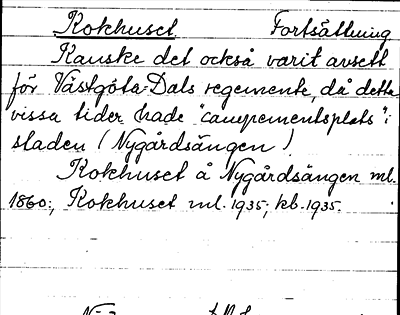 Kokhuset Fortsättning
Kanske det också varit avsett
för Västgöta-Dals regemente, då detta
vissa tider hade "campementsplats" i
staden (Nygårdsängen)
Kokhuset å Nygårdsängen ml.
1860; Kokhuset ml. 1935; kb. 1935.